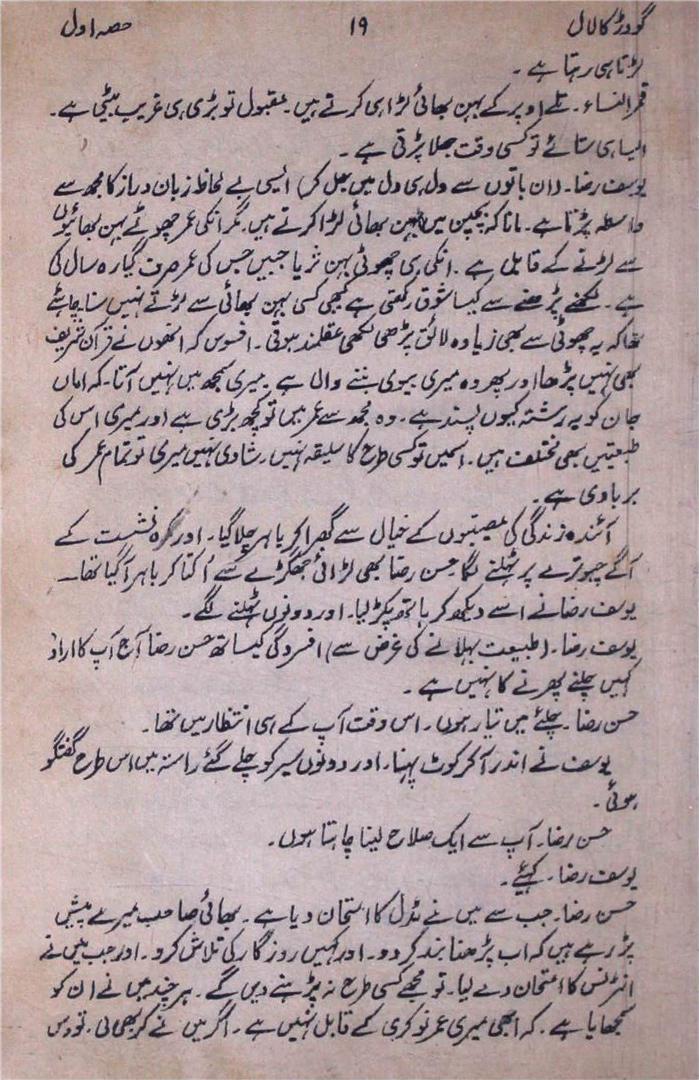 گودڑ کا لال ۱۹ حصہ اول
لڑتا ہی رہتا ہے ۔
قمر النساء ۔ تلے اوپر کے بہن بھائی لڑا ہی کرتے ہیں ۔ مقبول تو بڑی ہی غریب بیٹی ہے ۔
ایسا ہی ستائے تو کسی وقت جھلا پڑتی ہے ۔
یوسف رضا ۔ (ان باتوں سے دل ہی دل میں جل کر) ایسی بے لحاظ زبان دراز کا مجھ سے
واسطہ پڑنا ہے ۔ مانا کہ بچپن میں بہن بھائی لڑا کرتے ہیں ۔ مگر انکی عمر چھوٹے بہن بھائیوں
سے لڑنے کے قابل ہے ۔ انکی ہی چھوٹی بہن ثریا جبیں جس کی عمر صرف گیارہ سال کی
ہے ۔ لکھنے پڑھنے سے کیسا شوق رکھتی ہے کبھی کسی بہن بھائی سے لڑتے نہیں سنا چاہئے
تھا کہ یہ چھوٹی سے بھی زیادہ لائق پڑھی لکھی عقلمند ہوتی ۔ افسوس کہ انھوں نے قرآن شریف
بھی نہیں پڑھا اور پھر وہ میری بیوی بننے والی ہے ۔ میری سمجھ میں نہیں آتا ۔ کہ اماں
جان کو یہ رشتہ کیوں پسند ہے ۔ وہ مجھ سے عمر میں تو کچھ بڑی ہے اور میری اس کی
طبعیتیں بھی مختلف ہیں ۔ اسمیں تو کسی طرح کا سلیقہ نہیں ۔ شادی نہیں میری تو تمام عمر کی
بربادی ہے ۔
آئندہ زندگی کی مصیبتوں کے خیال سے گھبرا کر باہر چلا گیا ۔ اور کمرہ نشست کے
آگے چبوترے پر ٹہلنے لگا حسن رضا بھی لڑائی جھگڑے سے اُکتا کر باہر آ گیا تھا ۔
یوسف رضا نے اسے دیکھ کر ہاتھ پکڑ لیا ۔ اور دونوں ٹہلنے لگے ۔
یوسف رضا ۔ (طبیعت بہلانے کی غرض سے) افسردگی کیساتھ حسن رضا آج آپ کا ارادہ
کہیں چلنے پھرنے کا نہیں ہے ۔
حسن رضا ۔ چلئے میں تیار ہوں ۔ اس وقت آپ کے ہی انتظار میں تھا ۔
یوسف نے اندر آ کر کوٹ پہنا ۔ اور دونوں سیر کو چلے گئے راستہ میں اس طرح گفتگو
ہوئی ۔
حسن رضا ۔ آپ سے ایک صلاح لینا چاہتا ہوں ۔
یوسف رضا ۔ کہئے ۔
حسن رضا ۔ جب سے میں نے مڈل کا امتحان دیا ہے ۔ بھائی صاحب میرے پیش
پڑ رہے ہیں کہ اب پڑھنا بند کر دو ۔ اور کہیں روزگار کی تلاش کرو ۔ اور جب میں نے
انٹرنس کا امتحان دے لیا ۔ تو مجھے کسی طرح نہ پڑہنے دیں گے ۔ ہر چند میں نے ان کو
سمجھایا ہے ۔ کہ ابھی میری عمر نوکری کے قابل نہیں ہے ۔ اگر میں نے کر بھی لی ۔ تو دس